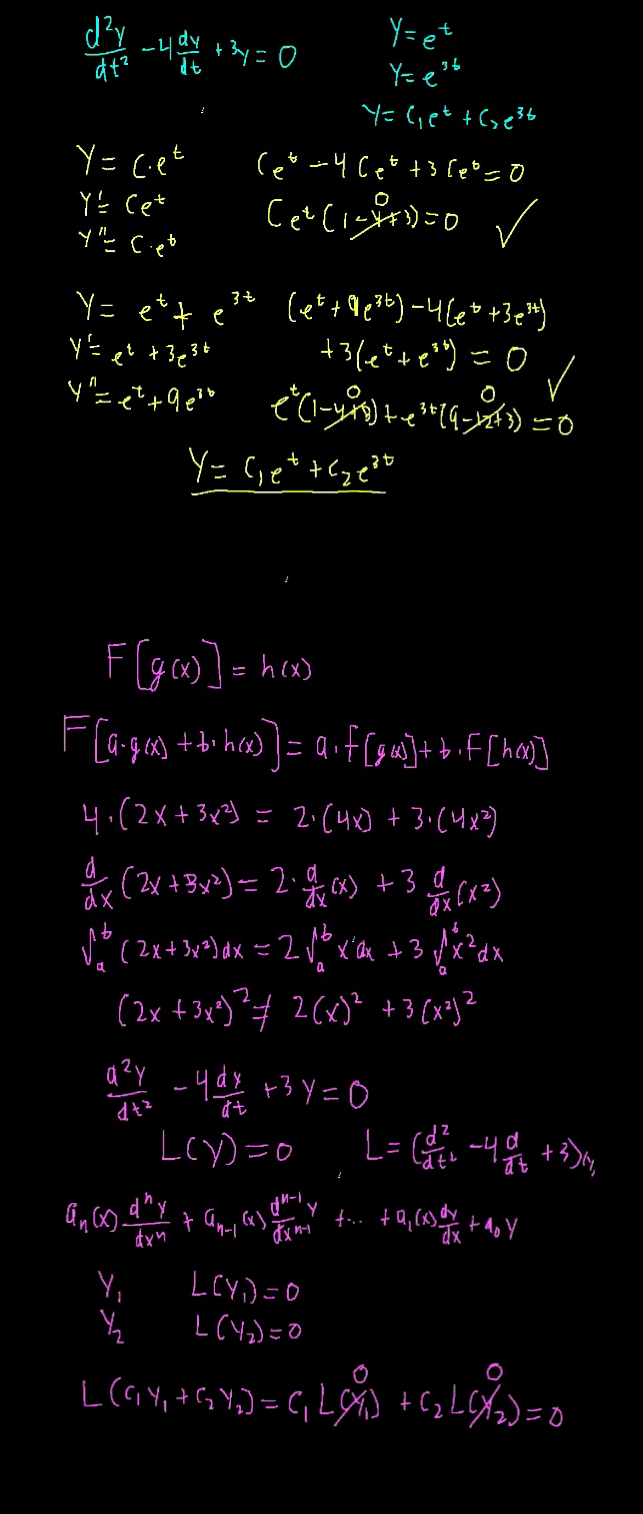 d²y/dt² - 4 dy/dt + 3y = 0
y = e^t
y = e^3t
y = C₁e^t + C₂e^3t
y = C·e^t
y' = Ce^t
y'' = C·e^t
Ce^t - 4Ce^t + 3Ce^t = 0
Ce^t(1-4+3) = 0 ✓
0
y = e^t + e^3t
y' = e^t + 3e^3t
y'' = e^t + 9e^3t
(e^t + 9e^3t) - 4(e^t + 3e^3t)
+3(e^t + e^3t) = 0 ✓
0 0
e^t(1-4+3) + e^3t(9-12+3) = 0
y = C₁e^t + C₂e^3t
F[g(x)] = h(x)
F[a·g(x) + b·h(x)] = a·F[g(x)] + b·F[h(x)]
4·(2x + 3x²) = 2·(4x) + 3·(4x²)
d/dx (2x + 3x²) = 2·d/dx (x) + 3 d/dx (x²)
∫_a^b (2x + 3x²)dx = 2∫_a^b x dx + 3∫_a^b x² dx
(2x + 3x²)² ≠ 2(x)² + 3(x²)²
d²y/dt² - 4 dy/dt + 3y = 0
L(y) = 0 L = (d²/dt² - 4 d/dt + 3)
a_n(x) d^n y/dx^n + a_n-1(x) d^n-1 y/dx^n-1 + ... + a₁(x) dy/dx + a₀y
y₁ L(y₁) = 0
y₂ L(y₂) = 0
0 0
L(C₁y₁ + C₂y₂) = C₁L(y₁) + C₂L(y₂) = 0